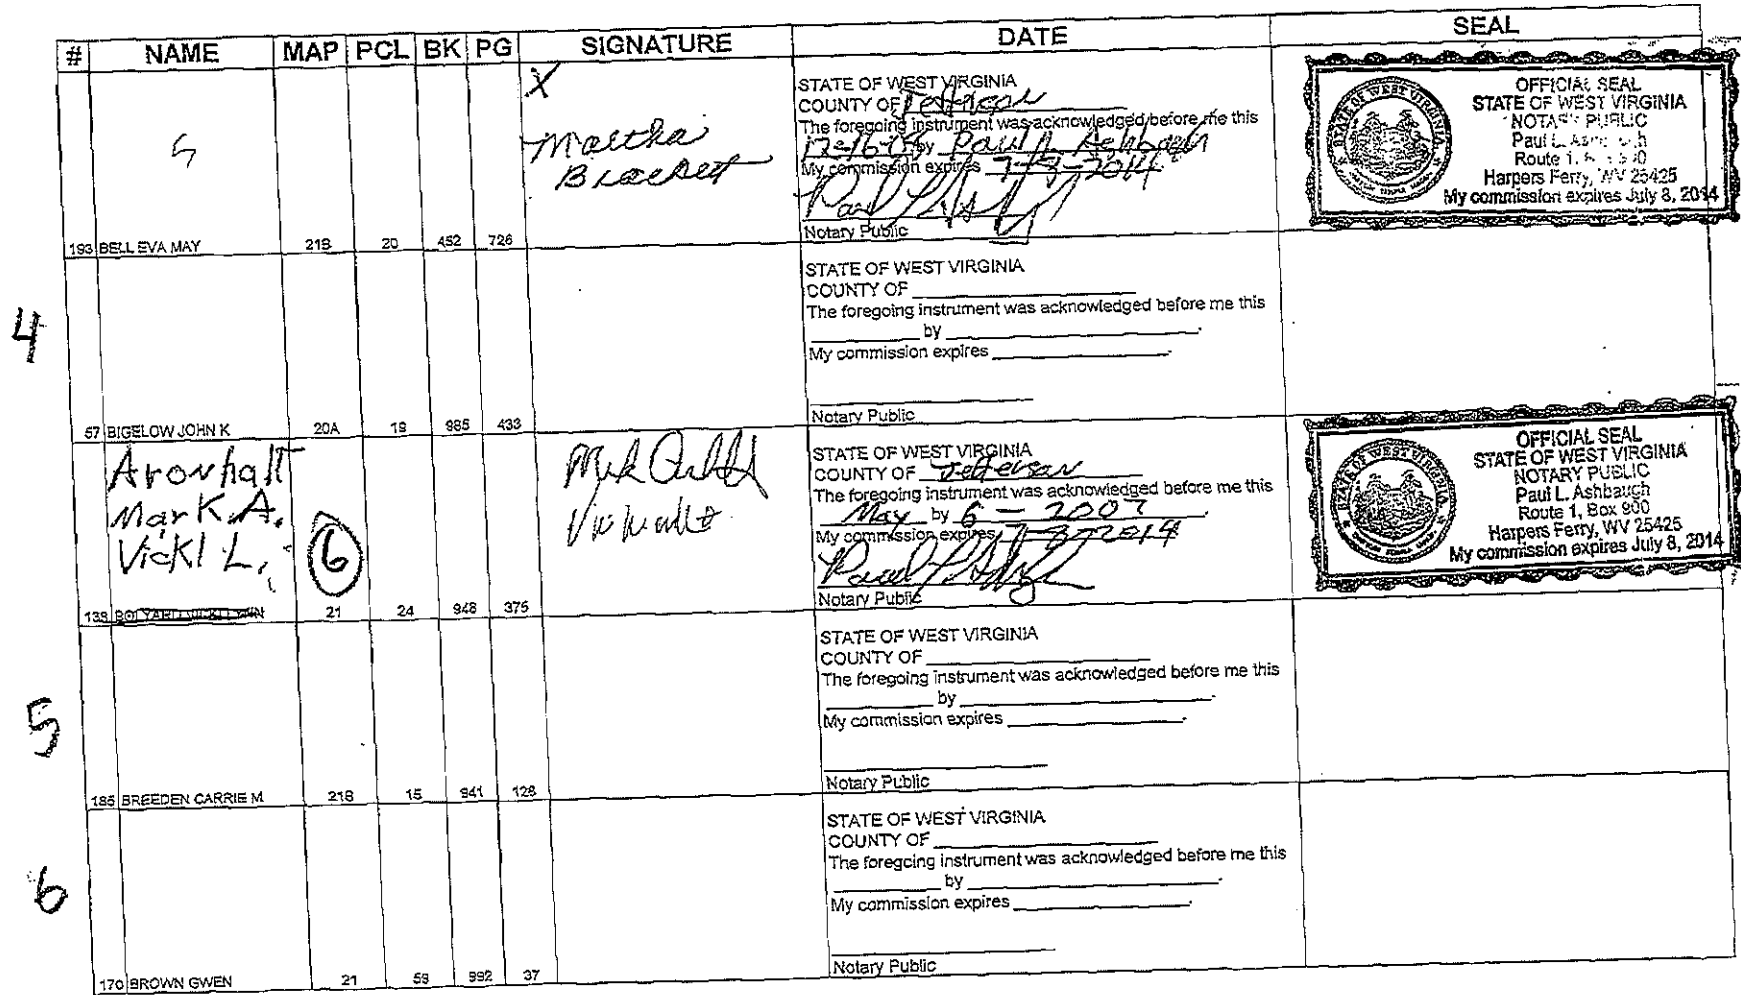 # NAME MAP PCL BK PG SIGNATURE DATE SEAL
X
5
Martha
STATE OF WEST VIRGINIA
COUNTY OF Jefferson
The foregoing instrument was acknowledged before me this
by Paul L. Ashbaugh
My commission expires 7-8-2014
Notary Public
OFFICIAL SEAL
STATE OF WEST VIRGINIA
NOTARY PUBLIC
Paul L.
Route 1,
Harpers Ferry, WV 25425
My commission expires July 8, 2014
STATE OF WEST VIRGINIA
193 BELL EVA MAY 21B 20 452 726
4
STATE OF WEST VIRGINIA
COUNTY OF
The foregoing instrument was acknowledged before me this
by
My commission expires
Notary Public
57 BIGELOW JOHN K 20A 19 985 433
Aronhalt
Mark A.
Vicki L.
6
STATE OF WEST VIRGINIA
COUNTY OF Jefferson
The foregoing instrument was acknowledged before me this
May by 6 - 2007
My commission expires 7-8-2014
Notary Public
OFFICIAL SEAL
STATE OF WEST VIRGINIA
NOTARY PUBLIC
Paul L. Ashbaugh
Route 1, Box 900
Harpers Ferry, WV 25425
My commission expires July 8, 2014
STATE OF WEST VIRGINIA
138 21 24 948 375
5
STATE OF WEST VIRGINIA
COUNTY OF
The foregoing instrument was acknowledged before me this
by
My commission expires
Notary Public
185 BREEDEN CARRIE M 21B 15 941 128
6
STATE OF WEST VIRGINIA
COUNTY OF
The foregoing instrument was acknowledged before me this
by
My commission expires
Notary Public
170 BROWN GWEN 21 59 992 37